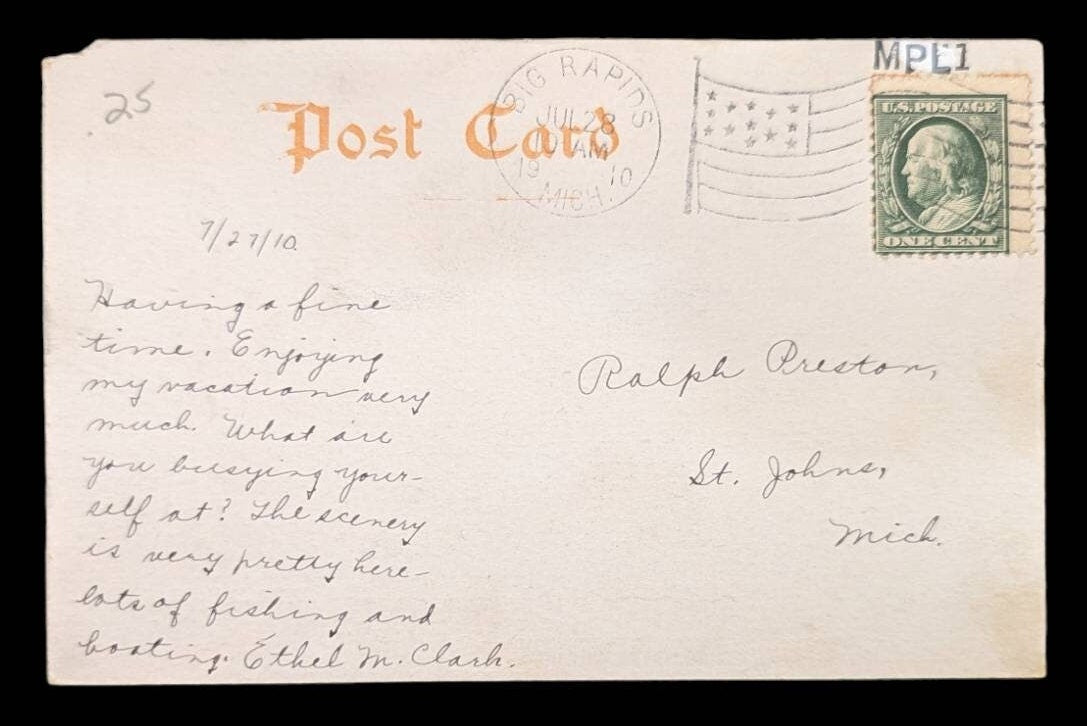 .25
Post Card
BIG RAPIDS
JUL 28
AM
1910
MICH.
MPL1
U.S. POSTAGE
ONE CENT
7/27/10
Having a fine
time. Enjoying
my vacation very
much. What are
you busying your-
self at? The scenery
is very pretty here-
lots of fishing and
boating. Ethel M. Clark.
Ralph Preston,
St. Johns,
Mich.